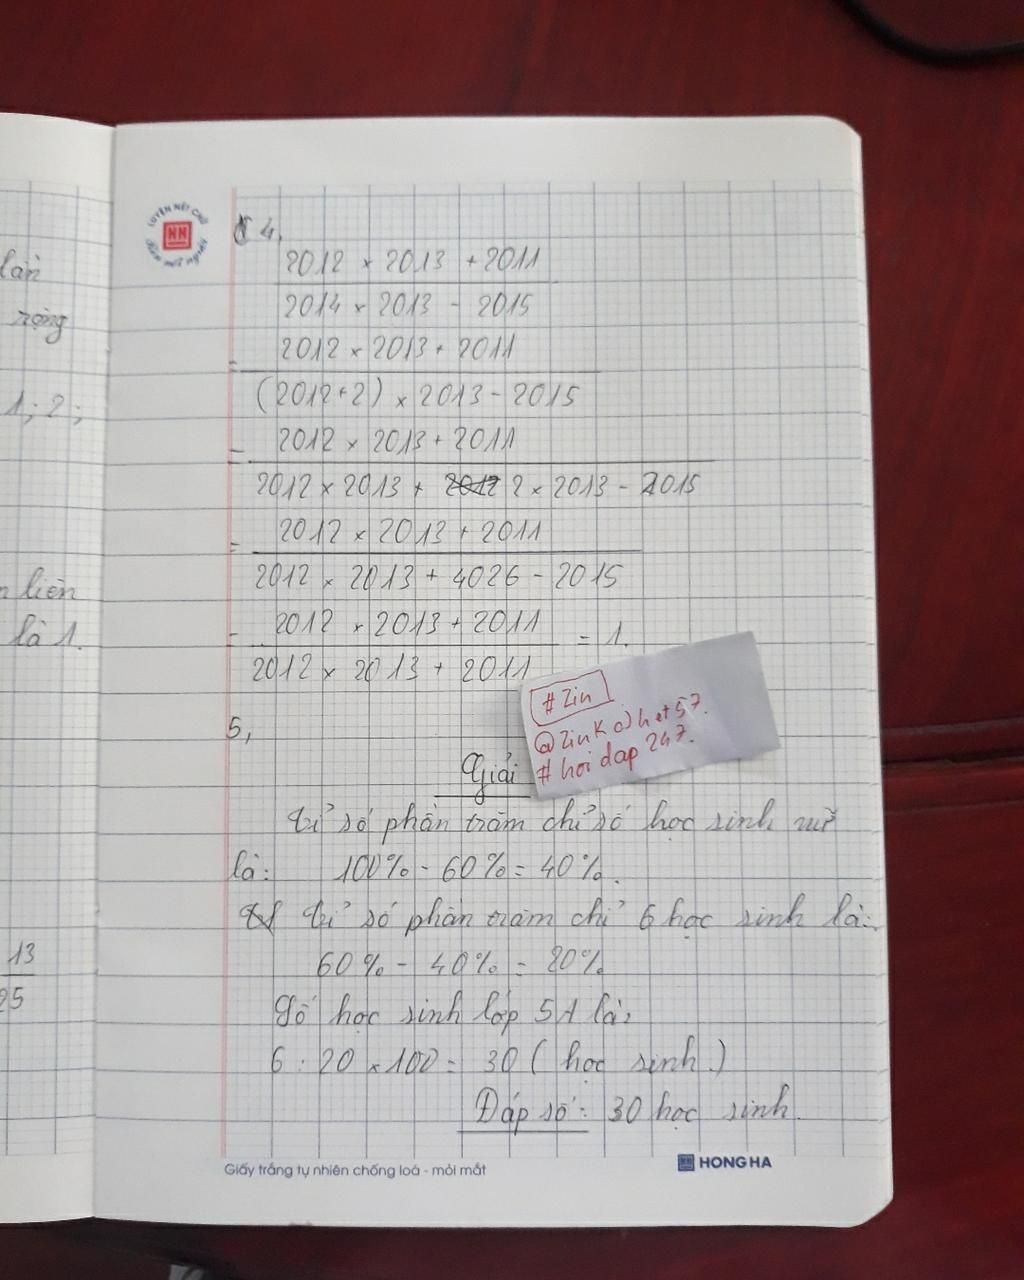 LUYỆN NÉT CHỮ
Rèn nết người
lần
rộng
1; 2;
n liên
là 1.
13
25
4,
2012 × 2013 + 2011
2014 × 2013 - 2015
= 2012 × 2013 + 2011
(2012+2) × 2013 - 2015
= 2012 × 2013 + 2011
2012 × 2013 + 2012 2 × 2013 - 2015
= 2012 × 2013 + 2011
2012 × 2013 + 4026 - 2015
= 2012 × 2013 + 2011 = 1.
2012 × 2013 + 2011
# Zin
@ZinKojhet57.
# hoi dap 247.
5,
Giải
Tỉ số phần trăm chỉ số học sinh nữ
là: 100% - 60% = 40%.
Tỉ số phần trăm chỉ 6 học sinh là:
60% - 40% = 20%
Số học sinh lớp 5A là:
6 : 20 × 100 = 30 ( học sinh )
Đáp số: 30 học sinh.
Giấy trắng tự nhiên chống loá - mỏi mắt
HONG HA